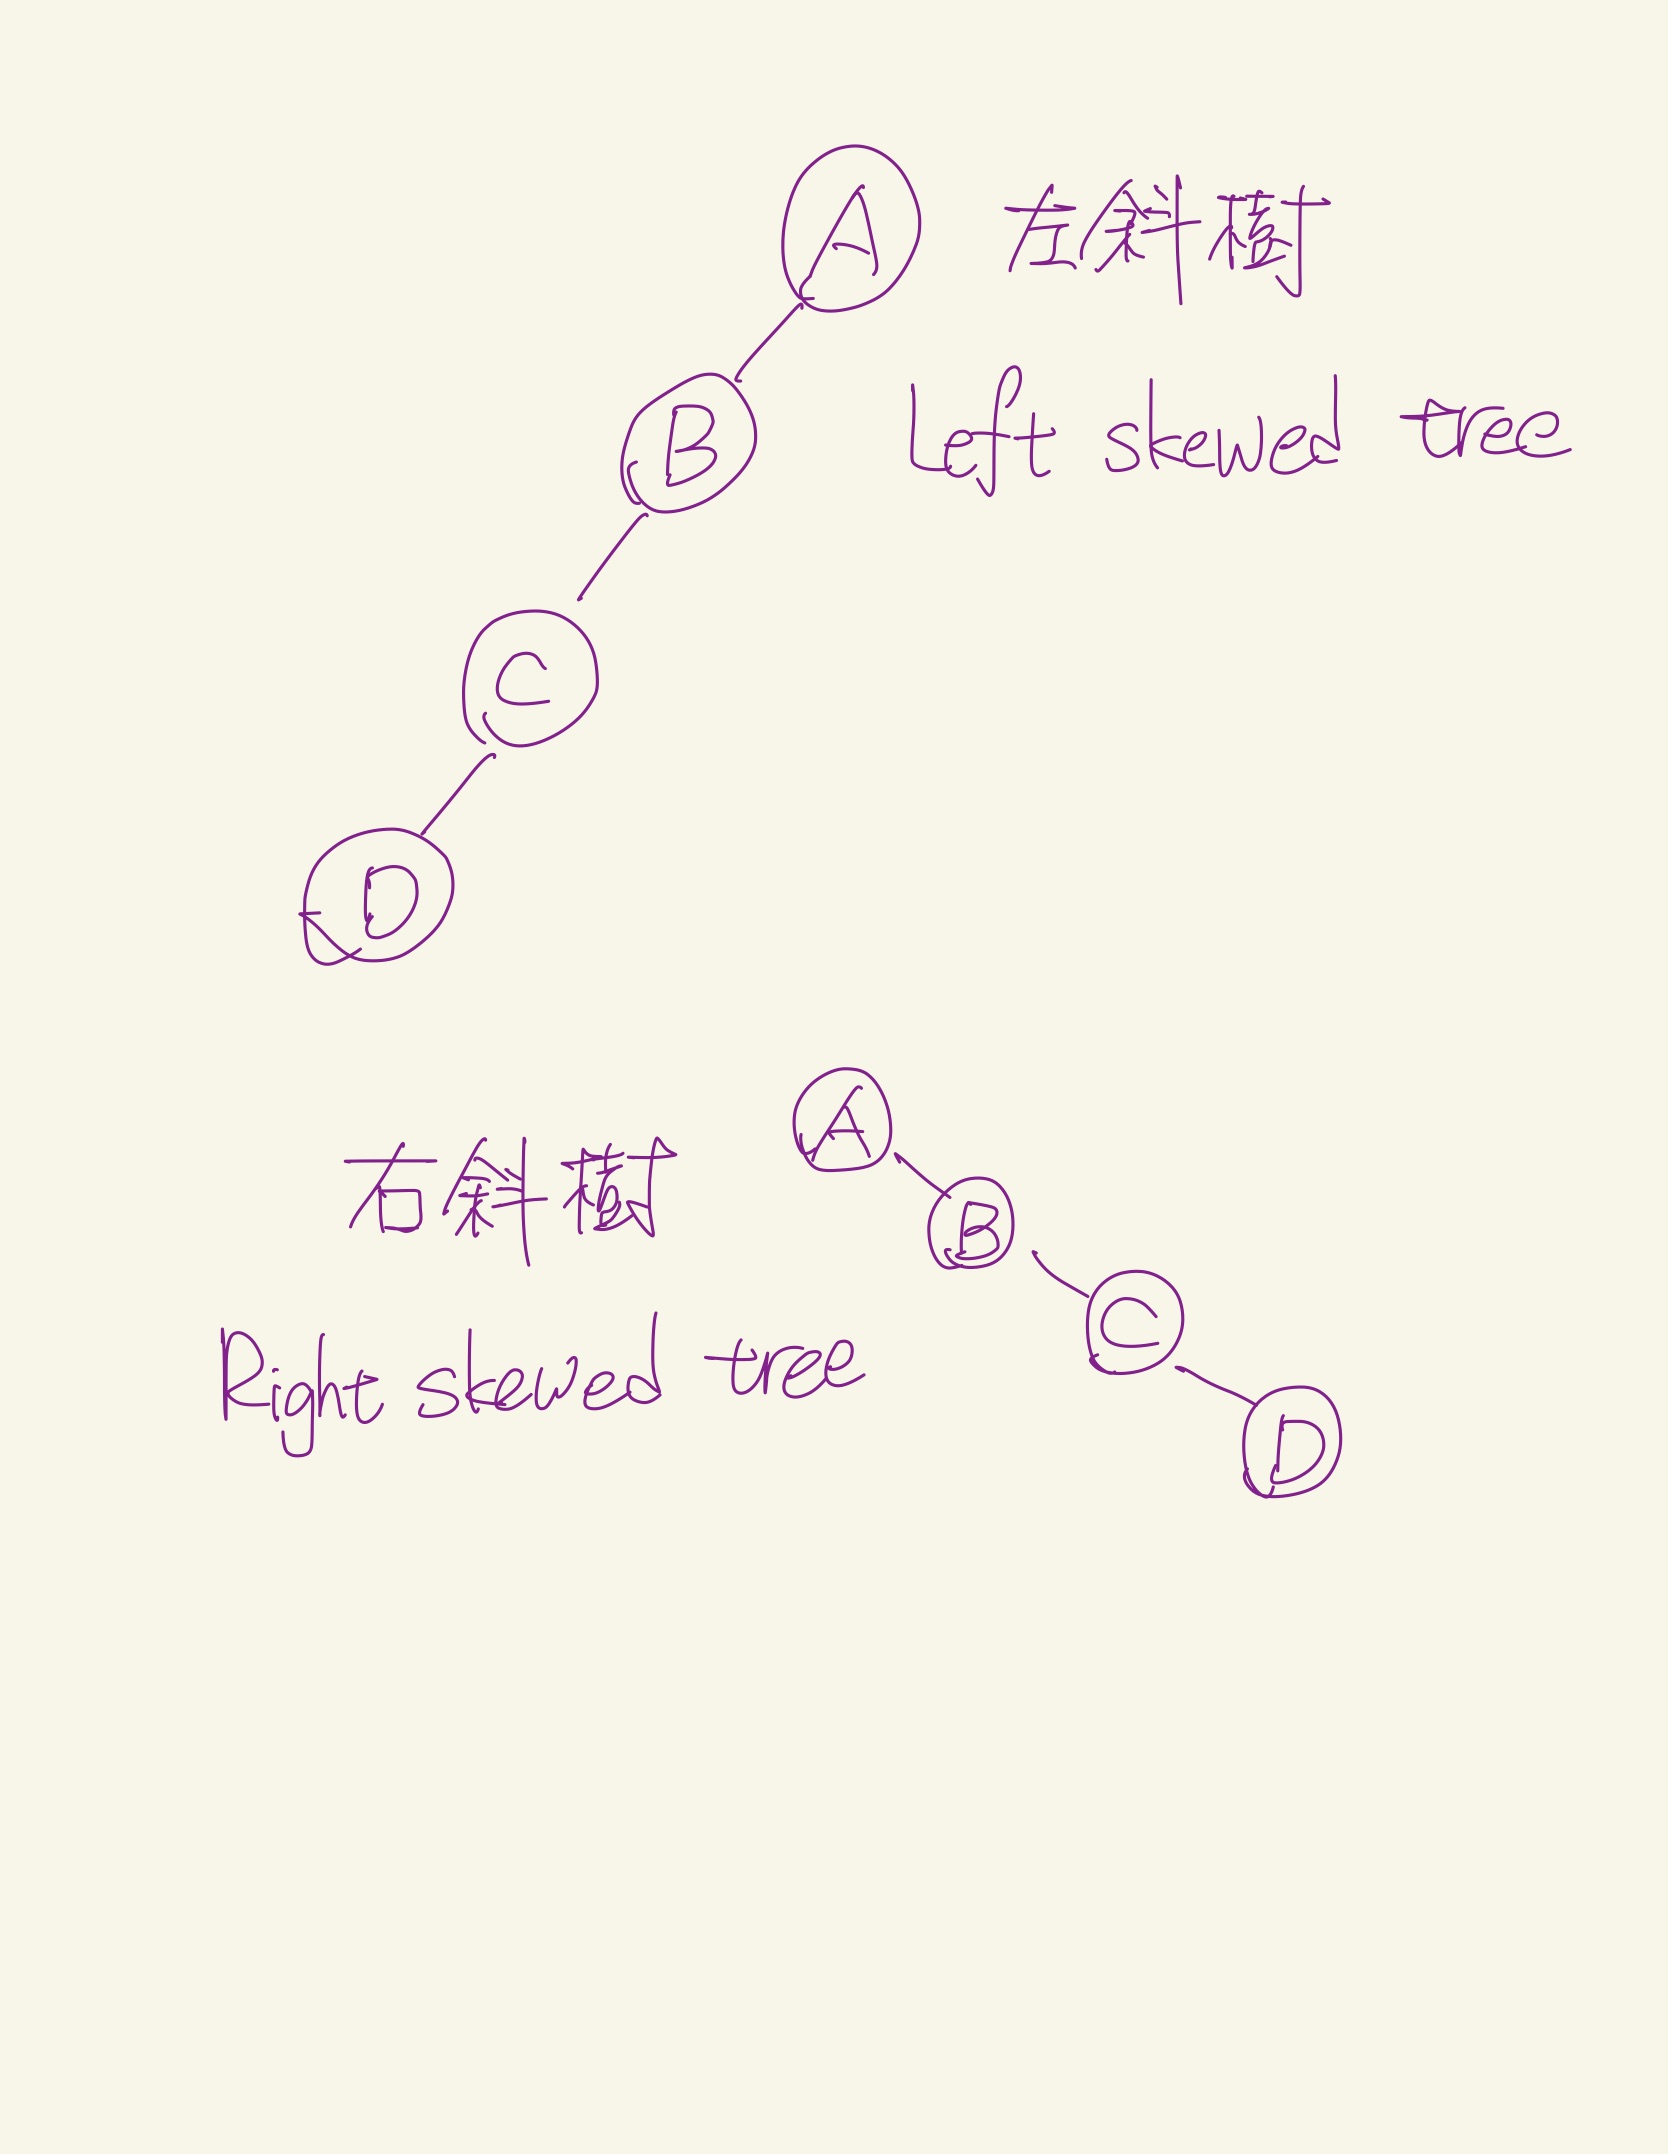 A
左斜樹
B
Left skewed tree
C
D
A
右斜樹
B
C
Right skewed tree
D